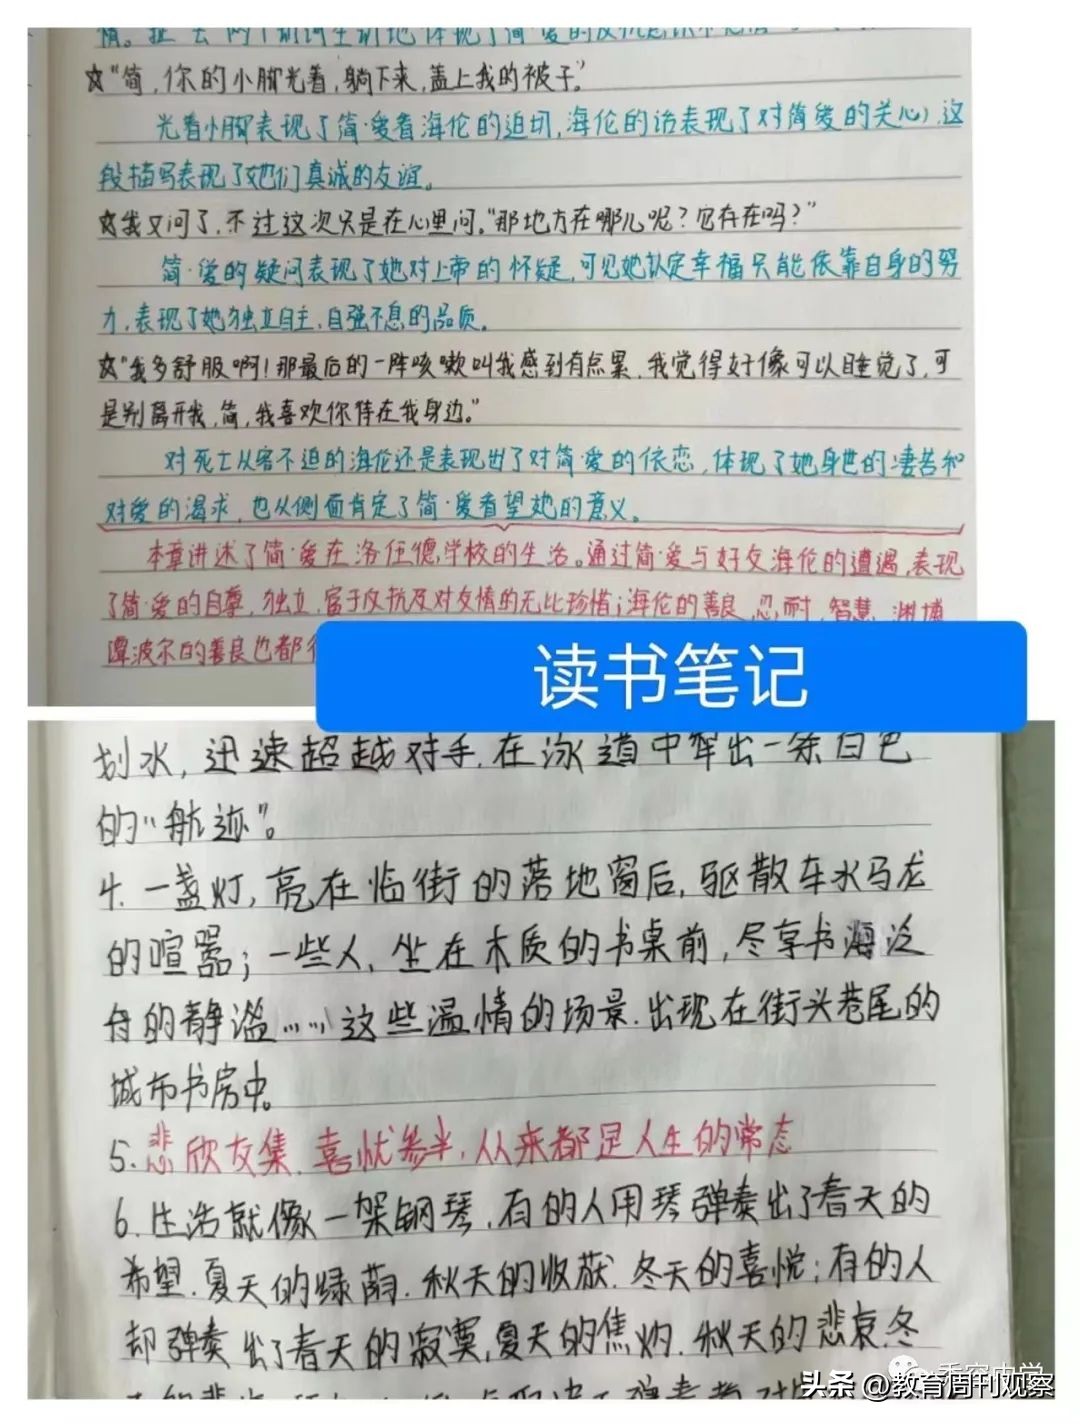 ☆"简,你的小脚光着,躺下来,盖上我的被子。"
光着小脚表现了简·爱看海伦的迫切,海伦的话表现了对简爱的关心,这
段描写表现了她们真诚的友谊。
☆我又问了,不过这次只是在心里问。"那地方在哪儿呢?它存在吗?"
简·爱的疑问表现了她对上帝的怀疑,可见她认定幸福只能依靠自身的努
力,表现了她独立自主、自强不息的品质。
☆"我多舒服啊!那最后的一阵咳嗽叫我感到有点累,我觉得好像可以睡觉了,可
是别离开我,简,我喜欢你待在我身边。"
对死亡从容不迫的海伦还是表现出了对简·爱的依恋,体现了她身世的凄苦和
对爱的渴求,也从侧面肯定了简·爱看望她的意义。
本章讲述了简·爱在洛伍德学校的生活。通过简·爱与好友海伦的遭遇,表现
了简·爱的自尊,独立,富于反抗及对友情的无比珍惜;海伦的善良,忍耐,智慧,渊博
谭波尔的善良也都
读书笔记
划水,迅速超越对手,在泳道中犁出一条白色
的"航迹"。
4.一盏灯,亮在临街的落地窗后,驱散车水马龙
的喧嚣;一些人,坐在木质的书桌前,尽享书海泛
舟的静谧……这些温情的场景,出现在街头巷尾的
城市书房中。
5.悲欣交集,喜忧参半,从来都是人生的常态
6.生活就像一架钢琴,有的人用琴弹奏出了春天的
希望,夏天的绿荫,秋天的收获,冬天的喜悦;有的人
却弹奏出了春天的寂寞,夏天的焦灼,秋天的悲哀,冬
头条@教育周刊观察